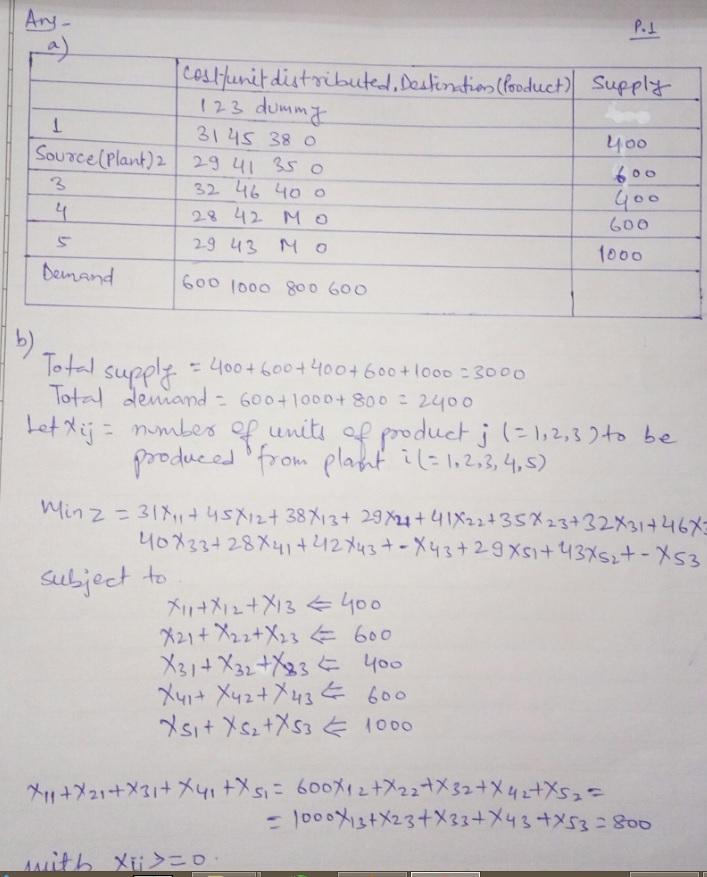 Ans - P.1
a)
Cost/unit distributed, Destination (Product) Supply
1 2 3 dummy
1 31 45 38 0 400
Source (Plant) 2 29 41 35 0 600
3 32 46 40 0 400
4 28 42 M 0 600
5 29 43 M 0 1000
Demand 600 1000 800 600
b)
Total supply = 400+600+400+600+1000 = 3000
Total demand = 600+1000+800 = 2400
Let Xij = number of units of product j (=1,2,3) to be
produced from plant i (=1,2,3,4,5)
Min z = 31X11 + 45X12 + 38X13 + 29X21 + 41X22 + 35X23 + 32X31 + 46X3
40X33 + 28X41 + 42X43 + - X43 + 29X51 + 43X52 + - X53
subject to
X11+X12+X13 <= 400
X21+X22+X23 <= 600
X31+X32+X33 <= 400
X41+X42+X43 <= 600
X51+X52+X53 <= 1000
X11+X21+X31+X41+X51 = 600X12+X22+X32+X42+X52 =
= 1000X13+X23+X33+X43+X53 = 800
with Xij >= 0.